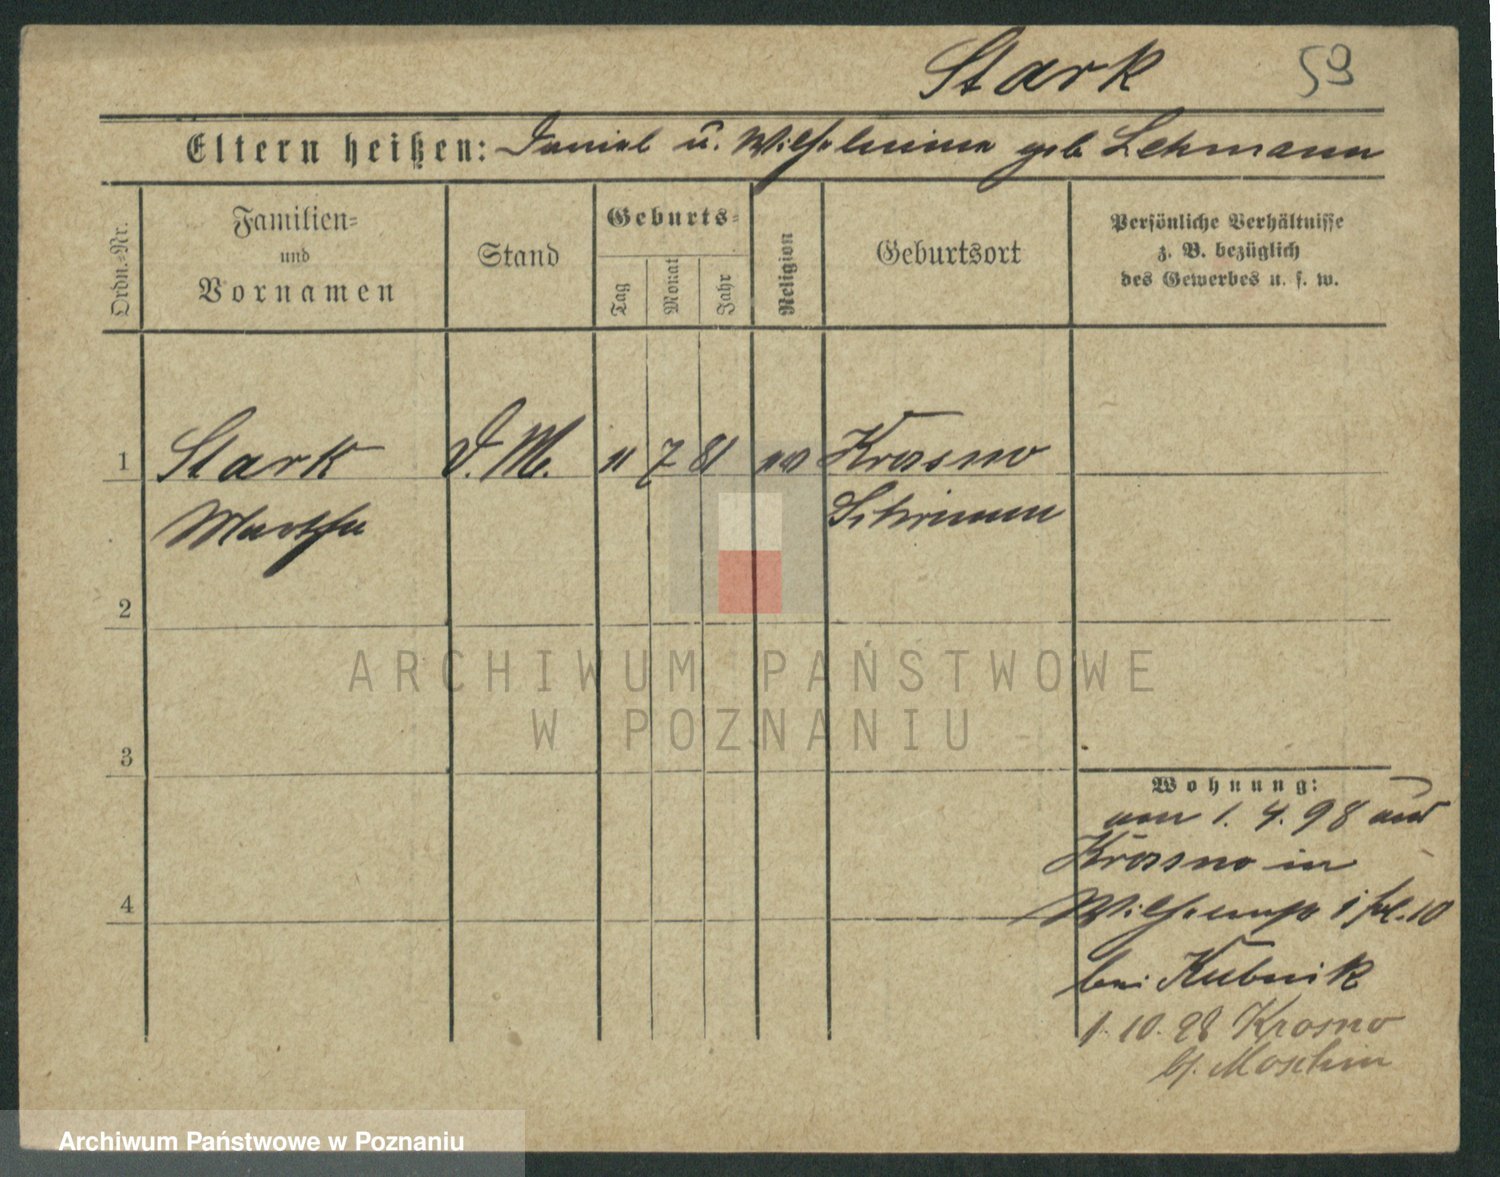 Stark 59
Eltern heißen: Daniel u. Wilhelmine geb Lehmann
Ordn.=Nr.
Familien=
und
Vornamen
Stand
Geburts=
Tag
Monat
Jahr
Religion
Geburtsort
Persönliche Verhältnisse
z. B. bezüglich
des Gewerbes u. s. w.
1 Stark D. M. 11 7 81 ev Krosno
Martha Schrimm
2
3
4
ARCHIWUM PAŃSTWOWE
W POZNANIU
Wohnung:
am 1. 4. 98 aus
Krosno in
10
bei Kubnik
1. 10. 98 Krosno
b/. Moschin
Archiwum Państwowe w Poznaniu